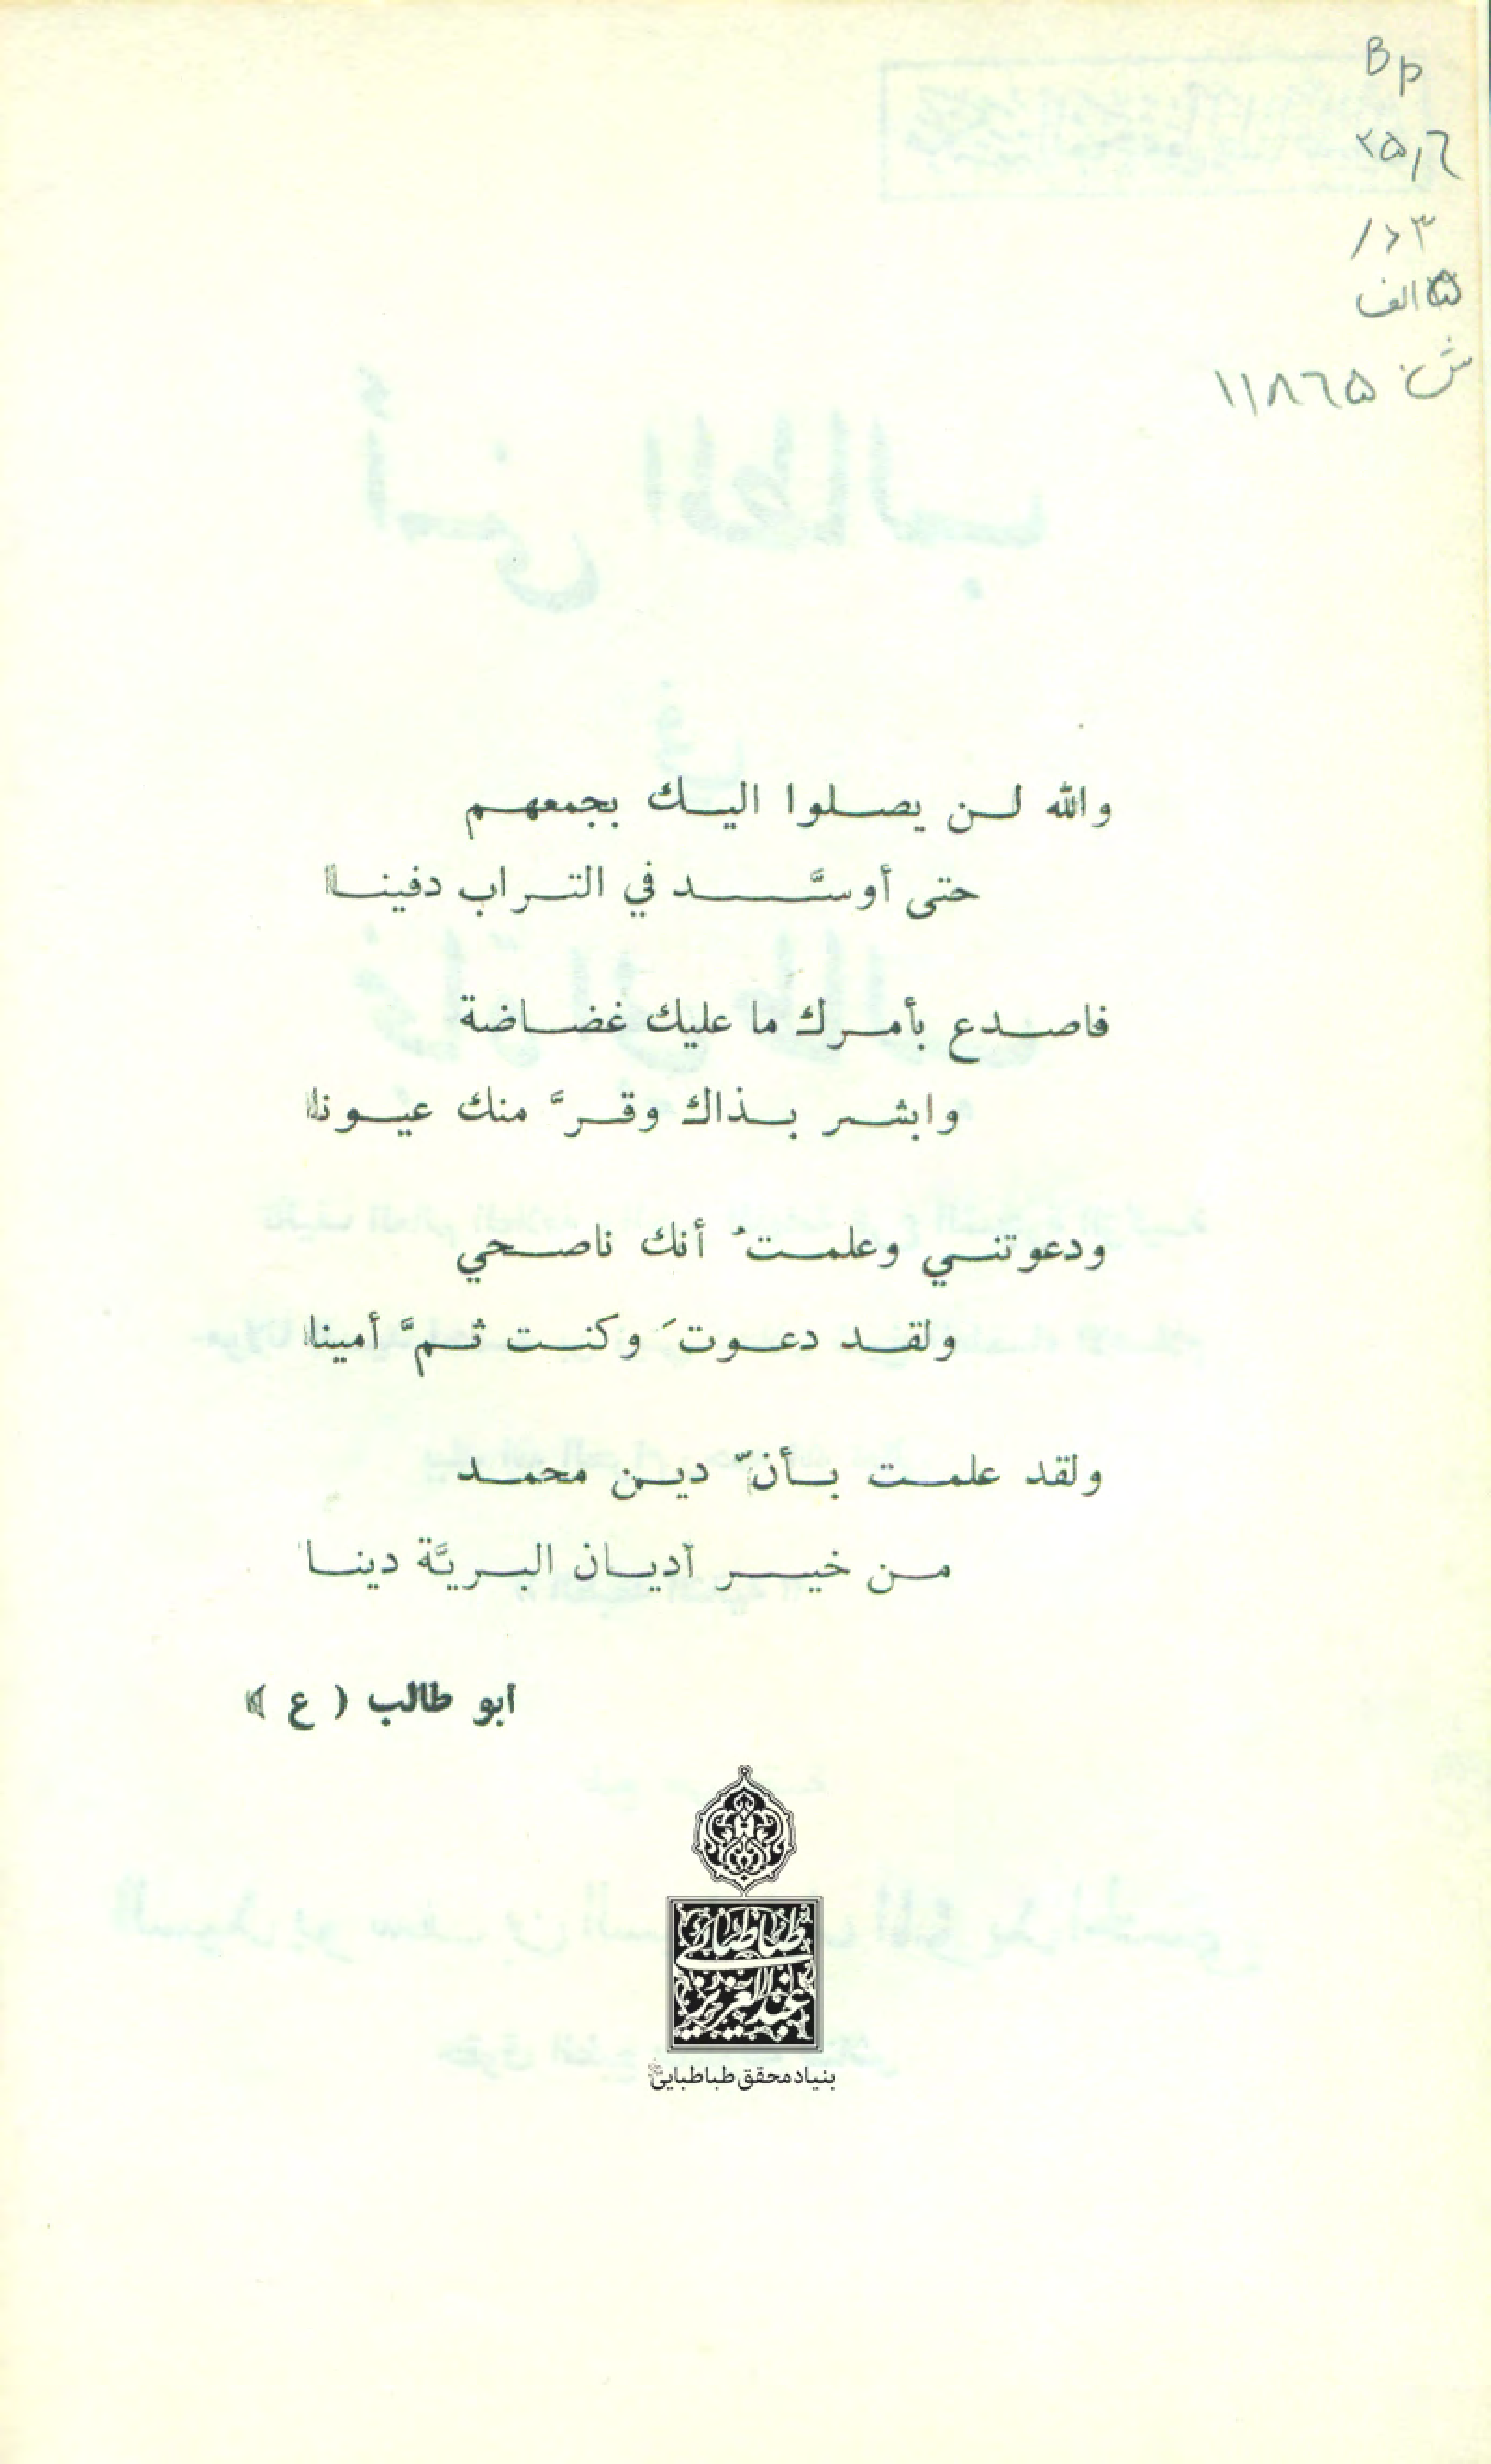 Bp
٢۵,٦
/د٣
۵الف
ش ١١٨٦۵
والله لن يصلوا اليك بجمعهم
حتى أوسَّد في التراب دفينا
فاصدع بأمرك ما عليك غضاضة
وابشر بذاك وقرَّ منك عيونا
ودعوتني وعلمتُ أنك ناصحي
ولقد دعوتَ وكنت ثمَّ أمينا
ولقد علمت بأنّ دين محمد
من خير أديان البريَّة دينا
ابو طالب ( ع )
طباطبایی
عبدالعزیز
بنیاد محقق طباطبایی